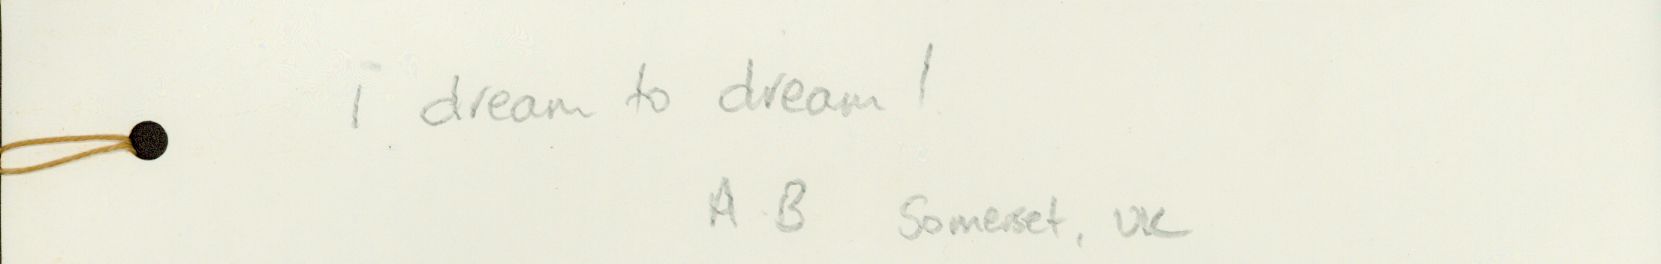 i dream to dream!
A B Somerset, UK